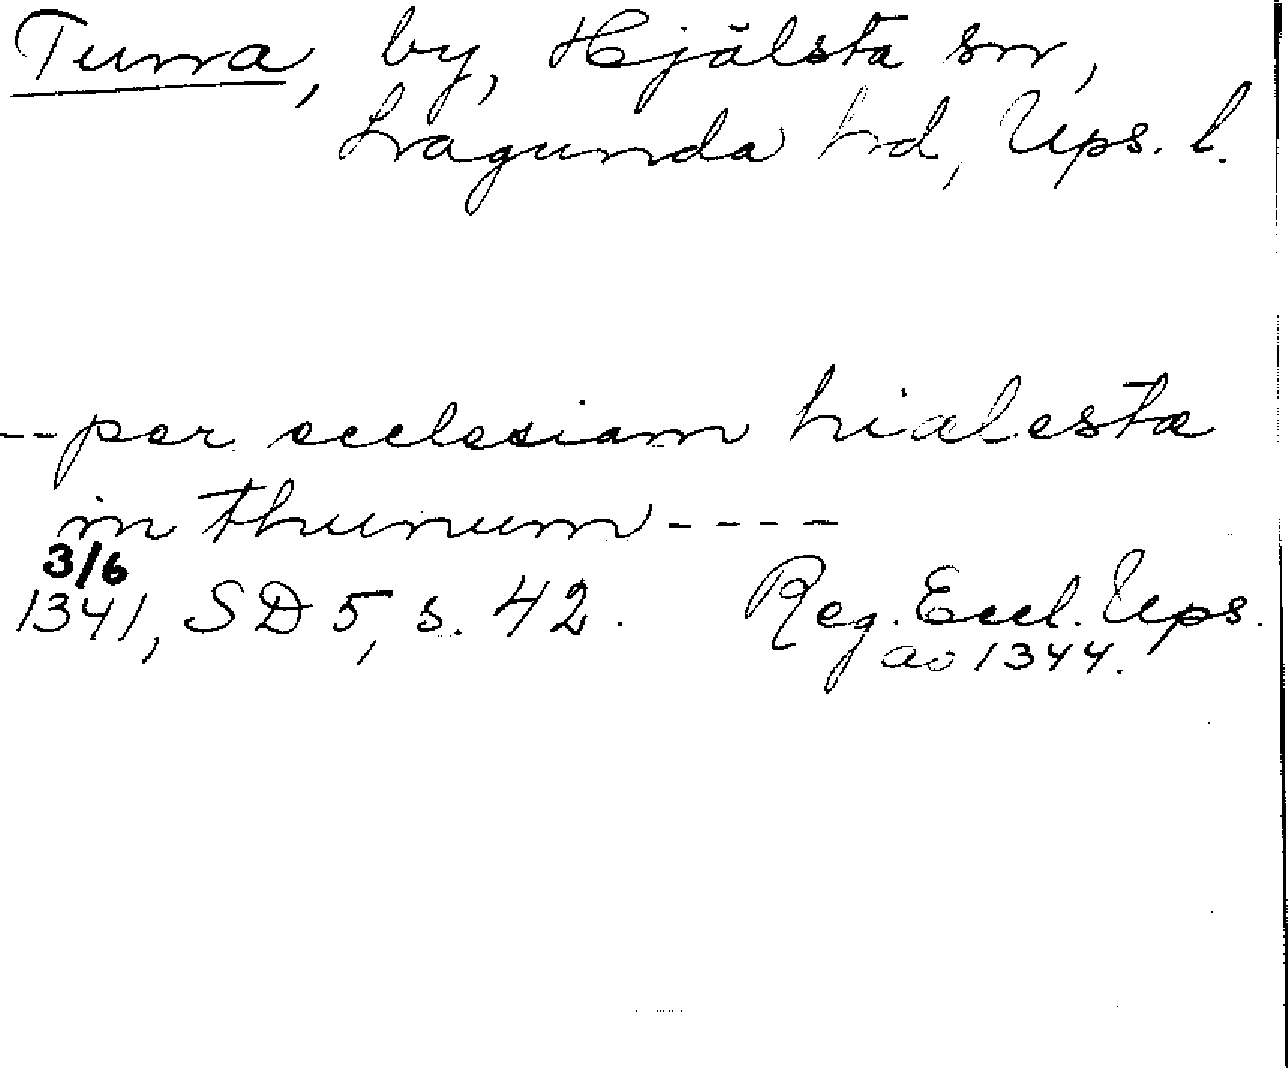 Tunna, by, Hjälsta sn,
Lagunda hd, Ups. l.
--per ecclesiam hialesta
in thunum----
3/6
1341, SD 5, s. 42. Reg. Eccl. Ups.
ao 1344.